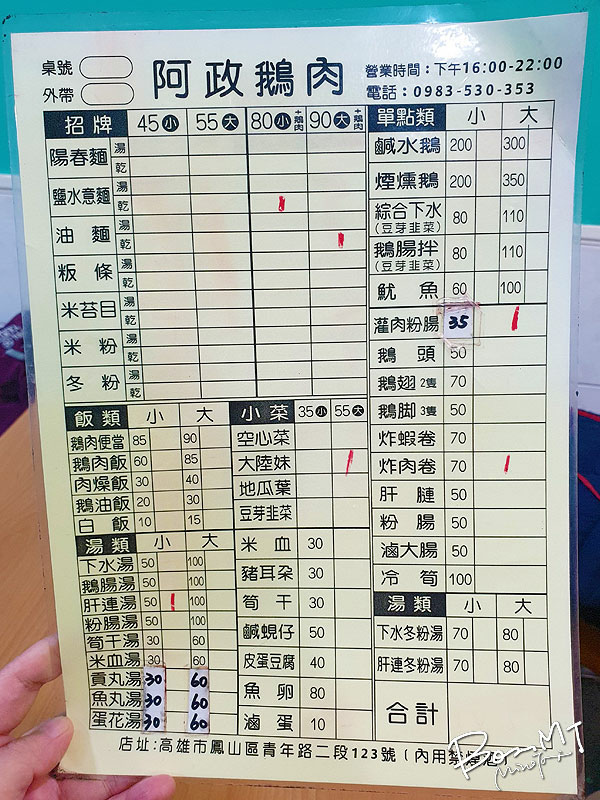 桌號
外帶
阿政鵝肉
營業時間:下午16:00-22:00
電話:0983-530-353
招牌 45小 55大 80小+鵝肉 90大+鵝肉
陽春麵 湯 乾
鹽水意麵 湯 乾
油麵 湯 乾
粄條 湯 乾
米苔目 湯 乾
米粉 湯 乾
冬粉 湯 乾
飯類 小 大
鵝肉便當 85 90
鵝肉飯 60 85
肉燥飯 30 40
鵝油飯 20 30
白飯 10 15
湯類 小 大
下水湯 50 100
鵝腸湯 50 100
肝連湯 50 100
粉腸湯 50 100
筍干湯 30 60
米血湯 30 60
貢丸湯 30 60
魚丸湯 30 60
蛋花湯 30 60
小菜 35小 55大
空心菜
大陸妹
地瓜葉
豆芽韭菜
米血 30
豬耳朵 30
筍干 30
鹹蜆仔 50
皮蛋豆腐 40
魚卵 80
滷蛋 10
單點類 小 大
鹹水鵝 200 300
煙燻鵝 200 350
綜合下水 80 110
(豆芽韭菜)
鵝腸拌 80 110
(豆芽韭菜)
魷魚 60 100
灌肉粉腸 35
鵝頭 50
鵝翅2隻 70
鵝脚3隻 50
炸蝦卷 70
炸肉卷 70
肝膤 50
粉腸 50
滷大腸 50
冷筍 100
湯類 小 大
下水冬粉湯 70 80
肝連冬粉湯 70 80
合計
店址:高雄市鳳山區青年路二段123號(內用禁煙酒)